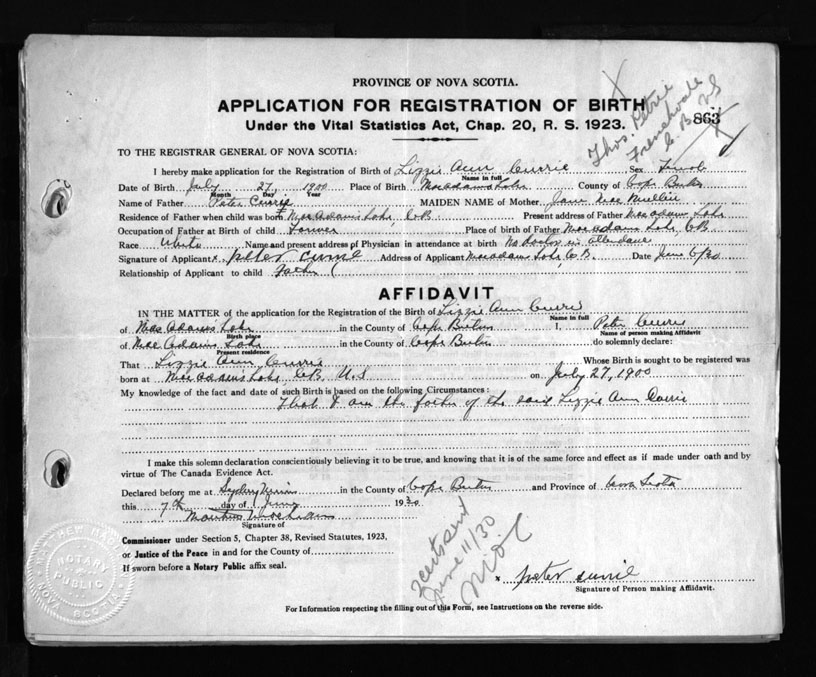 PROVINCE OF NOVA SCOTIA.
APPLICATION FOR REGISTRATION OF BIRTH
Under the Vital Statistics Act, Chap. 20, R. S. 1923.
863
Thos. Petrie
Frenchvale
C B N S
TO THE REGISTRAR GENERAL OF NOVA SCOTIA:
I hereby make application for the Registration of Birth of Lizzie Ann Currie Sex
Name in full
Date of Birth July 27, 1900 Place of Birth MacAdams Lake County of Cape Breton
Month Day Year
Name of Father Peter Currie MAIDEN NAME of Mother Jane
Residence of Father when child was born MacAdams Lake, CB Present address of Father MacAdams Lake
Occupation of Father at Birth of child Farmer Place of birth of Father MacAdams Lake, CB
Race White Name and present address of Physician in attendance at birth No doctor in attendance
Signature of Applicant x Peter Currie Address of Applicant MacAdams Lake, C B. Date June 6/30
Relationship of Applicant to child Father
AFFIDAVIT
IN THE MATTER of the application for the Registration of the Birth of Lizzie Ann Currie
Name in full
of MacAdams Lake in the County of Cape Breton I. Peter Currie
Birth place Name of person making Affidavit
of MacAdams Lake in the County of Cape Breton do solemnly declare:
Present residence
That Lizzie Ann Currie Whose Birth is sought to be registered was
born at MacAdams Lake CB N.S on July 27, 1900
My knowledge of the fact and date of such Birth is based on the following Circumstances:
That I am the father of the said Lizzie Ann Currie
I make this solemn declaration conscientiously believing it to be true, and knowing that it is of the same force and effect as if made under oath and by
virtue of The Canada Evidence Act.
Declared before me at Sydney Mines in the County of Cape Breton and Province of Nova Scotia
this 7th day of June 1930
Signature of
Commissioner under Section 5, Chapter 38, Revised Statutes, 1923,
or Justice of the Peace in and for the County of
If sworn before a Notary Public affix seal.
MATTHEW
NOTARY
PUBLIC
NOVA SCOTIA
sent
June 11/30
x Peter Currie
Signature of Person making Affidavit.
For Information respecting the filling out of this Form, see Instructions on the reverse side.